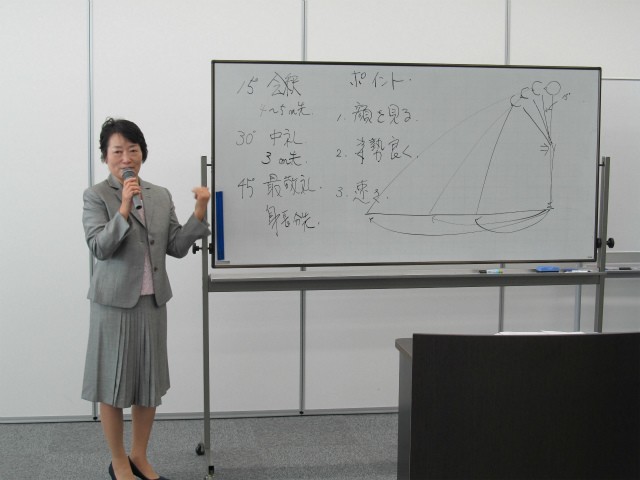 15° 会釈
4~5m先
30° 中礼
3m先
45° 最敬礼
身長分先
ポイント
1. 顔を見る
2. 姿勢良く
3. 速さ